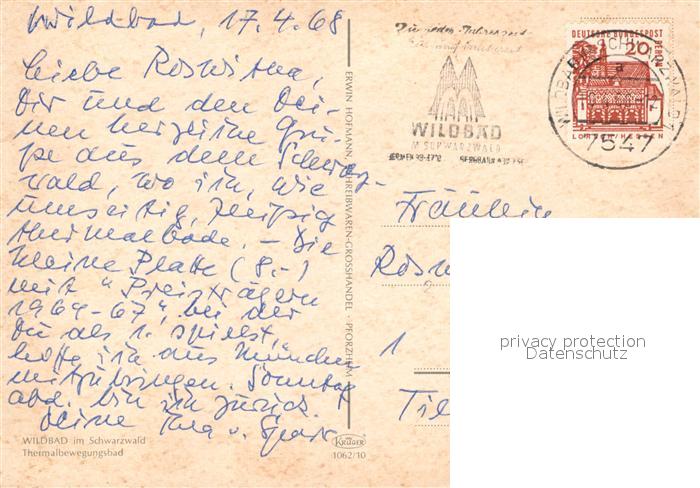 Wildbad, 17.4.68
Liebe Roswitha,
Dir und den Dei-
nen herzliche Grü-
ße aus dem Schwarz-
wald, wo ich, wie
umseitig, fleißig
thermalbade. – Die
kleine Platte (8.-)
mit "Preisträgern
1964-67", bei der
Du als 1. spielst,
hoffe ich aus München
mitzubringen. Sonntag
abd. bin ich zurück.
Deine
WILDBAD im Schwarzwald
Thermalbewegungsbad
ERWIN HOFMANN, SCHREIBWAREN-GROSSHANDEL · PFORZHEIM
KRÜGER
1062/10
Zu jeder Jahreszeit
WILDBAD
IM SCHWARZWALD
DEUTSCHE BUNDESPOST
BERLIN
20
LORSCH/HESSEN
WILDBAD SCHWARZWALD
a
7547
Fräulein
Rosw
1
privacy protection
Datenschutz